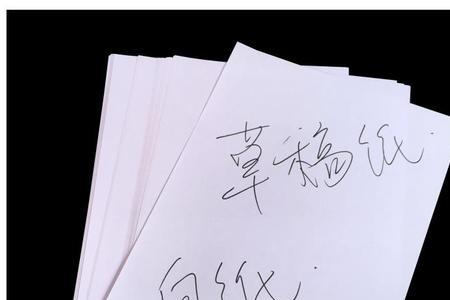 草稿纸.
白纸.